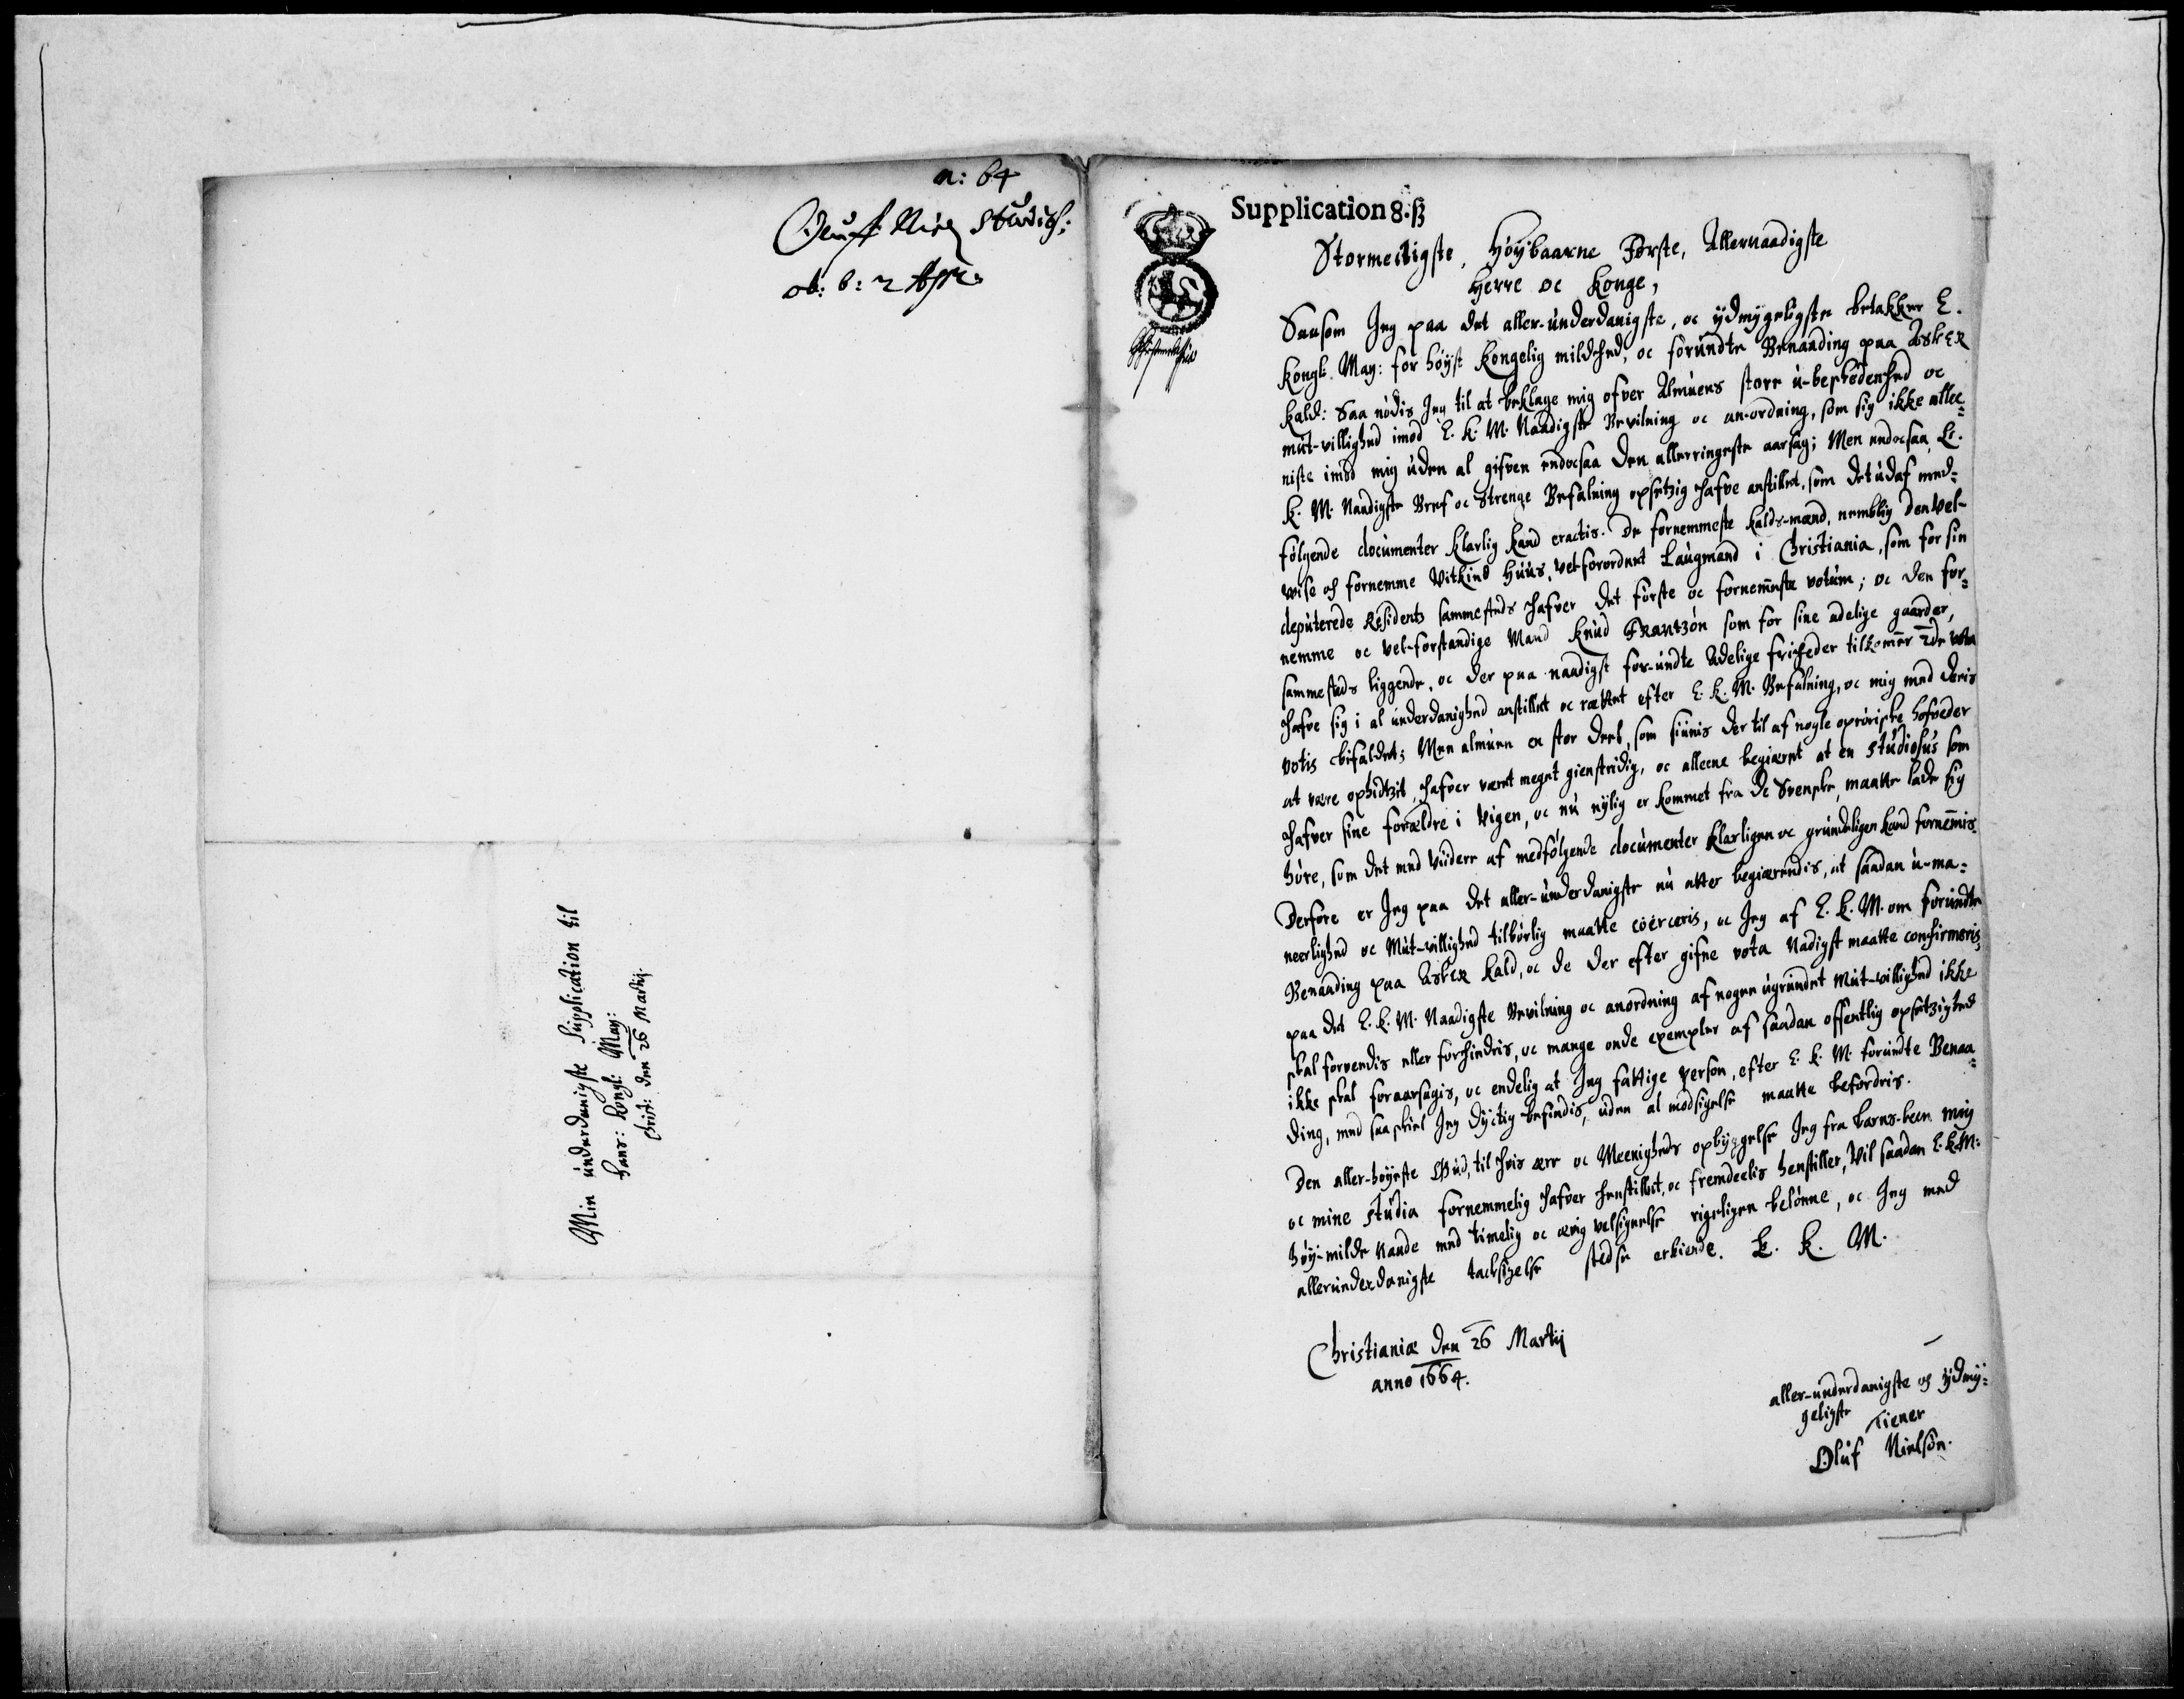 n: 64
Oluff Niels Studios:
ob: b: 2 Apr:
Min underdanigste Supplication til
hans: Kongl: May:
Christ: den 26 Martij.
Supplication 8. ß
Stormectigste, Höÿbaarne Förste, Allernaadigste
Herre oc Konge,
Saasom Jeg paa det aller-underdanigste, oc ydmygeligste betakker E.
Kongl. May: for höÿst Kongelig mildhed, oc forundte Benaading paa Asker
Kald: Saa nödis Jeg til at beklage mig ofver Almuens store u-beskedenhed oc
mut-villighed imod E. K. M. Naadigste Bevilning oc an-ordning, som sig ikke allee=
niste imod mig uden al gifven endocsaa den allerringeste aarsag; Men endocsaa E.
K. M. Naadigste Bref oc Strenge Befalning opsetzig hafve anstillet, som det udaf med=
fölgende documenter klarlig kand eractis. De fornemmeste Kalds-mænd, nemblig den Vel-
wise oc fornemme Vitkind Huus, vel-forordnet Laugmand i Christiania, som for sin
deputerede Residents sammesteds hafver det förste oc fornemmeste votum; oc den for=
nemme oc vel-forstandige Mand Knud Frantzön som for sine adelige gaarder,
sammesteds liggende, oc der paa naadigst for-undte Adelige friheder tilkommer 2de vota
hafve sig i al underdanighed anstillet oc rættet efter E. K. M. Befalning, oc mig med deris
votis bifaldet; Men almuen en stor deel, som siunis der til af nogle opröriske hofveder
at være ophidtzit, hafver været meget gienstridig, oc alleene begiæret at en studiosus som
hafver sine forældre i Vigen, oc nu nylig er kommet fra de Svenske, maatte lade sig
höre, som det med viidere af medfölgende documenter klarligen oc grundeligen kand fornemmis.
Derfore er Jeg paa det aller-underdanigste nu atter begiærendis, at saadan u-ma=
neerlighed oc Mut-villighed tilbörlig maatte coërceris, oc Jeg af E. K. M. om forundte
Benaading paa Asker Kald, oc de der efter gifne vota Nadigst maatte confirmeris,
paa det E. K. M. Naadigste Bevilning oc anordning af nogen ugrundet mut-villighed ikke
skal forvendis eller forhindris, oc mange onde exempler af saadan offentlig opsetzighed
ikke skal foraarsagis, oc endelig at Jeg fattige person, efter E. K. M. forundte Benaa=
ding, med saa skiel Jeg dyctig befindis, uden al modsigelse maatte befordris.
Den aller-höyeste Gud, til hvis ære oc Meenigheds opbyggelse Jeg fra barns-been mig
oc mine studia fornemmelig hafver henstillet, oc fremdeelis henstiller, Vil saadan E. K. M:
höy-milde Naade med timelig oc ævig velsignelse rigeligen belönne, oc Jeg med
allerunderdanigste tacksigelse stedse erkiende. E. K. M.
Christianiæ den 26 Martij
anno 1664.
aller-underdanigste oc ydmy=
geligste Tiener
Oluf Nielsön.